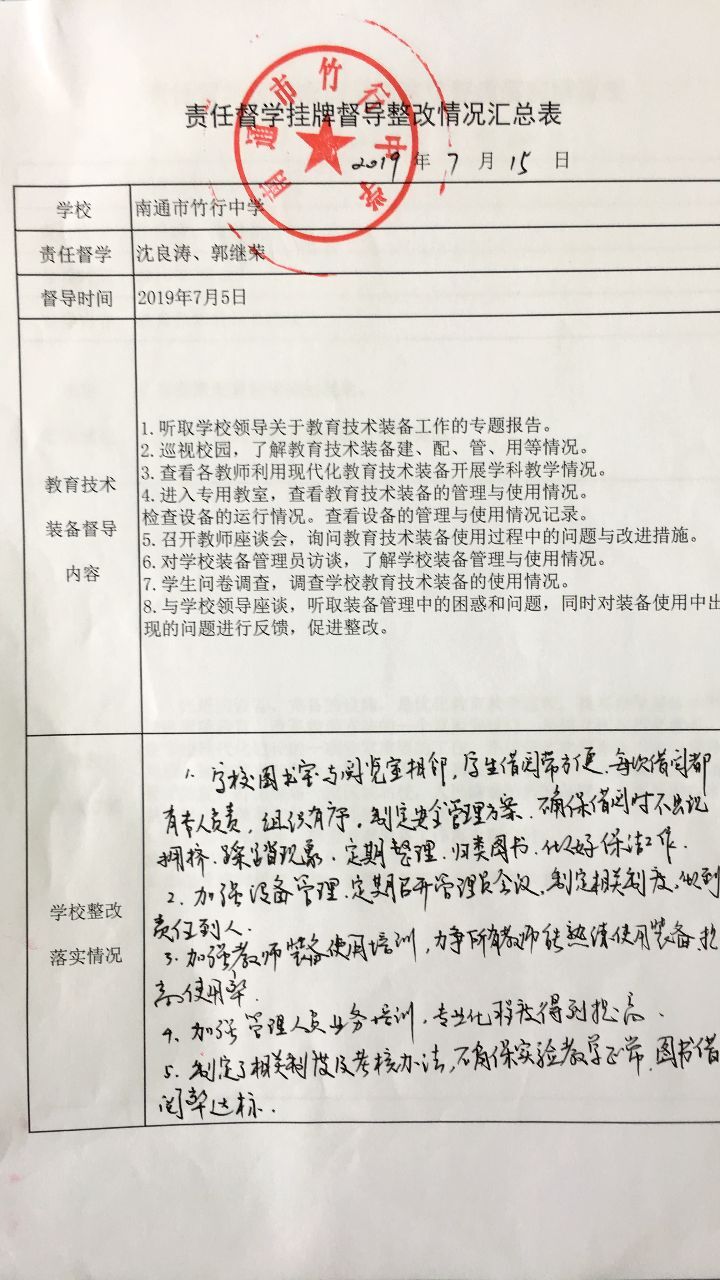 责任督学挂牌督导整改情况汇总表
南通市竹行中学
2019 年 7 月 15 日
学校 南通市竹行中学
责任督学 沈良涛、郭继荣
督导时间 2019年7月5日
教育技术
装备督导
内容
1. 听取学校领导关于教育技术装备工作的专题报告。
2. 巡视校园，了解教育技术装备建、配、管、用等情况。
3. 查看各教师利用现代化教育技术装备开展学科教学情况。
4. 进入专用教室，查看教育技术装备的管理与使用情况。
检查设备的运行情况。查看设备的管理与使用情况记录。
5. 召开教师座谈会，询问教育技术装备使用过程中的问题与改进措施。
6. 对学校装备管理员访谈，了解学校装备管理与使用情况。
7. 学生问卷调查，调查学校教育技术装备的使用情况。
8. 与学校领导座谈，听取装备管理中的困惑和问题，同时对装备使用中出
现的问题进行反馈，促进整改。
学校整改
落实情况
1. 学校图书室与阅览室相邻，学生借阅带方便、每次借阅都
有专人负责，组织有序，制定安全管理方案、确保借阅时不出现
拥挤、踩踏现象、定期整理、归类图书、做好保洁工作.
2. 加强设备管理、定期召开管理员会议，制定相关制度，做到
责任到人.
3. 加强教师装备使用培训，力争所有教师能熟练使用装备、提
高使用率.
4. 加强管理人员业务培训，专业化程度得到提高.
5. 制定了相关制度及考核办法，确保实验教学正常、图书借
阅率达标.